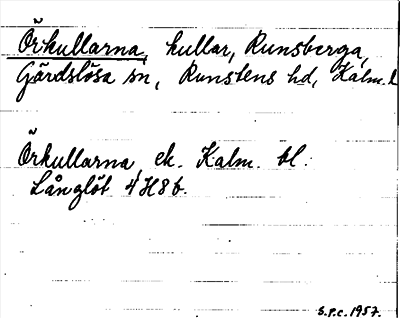 Örkullarna, kullar, Runsberga,
Gärdslösa sn, Runstens hd, Kalm. l
Örkullarna, ek. Kalm. bl.
Långlöt 4H8b.
S.P.C. 1957.